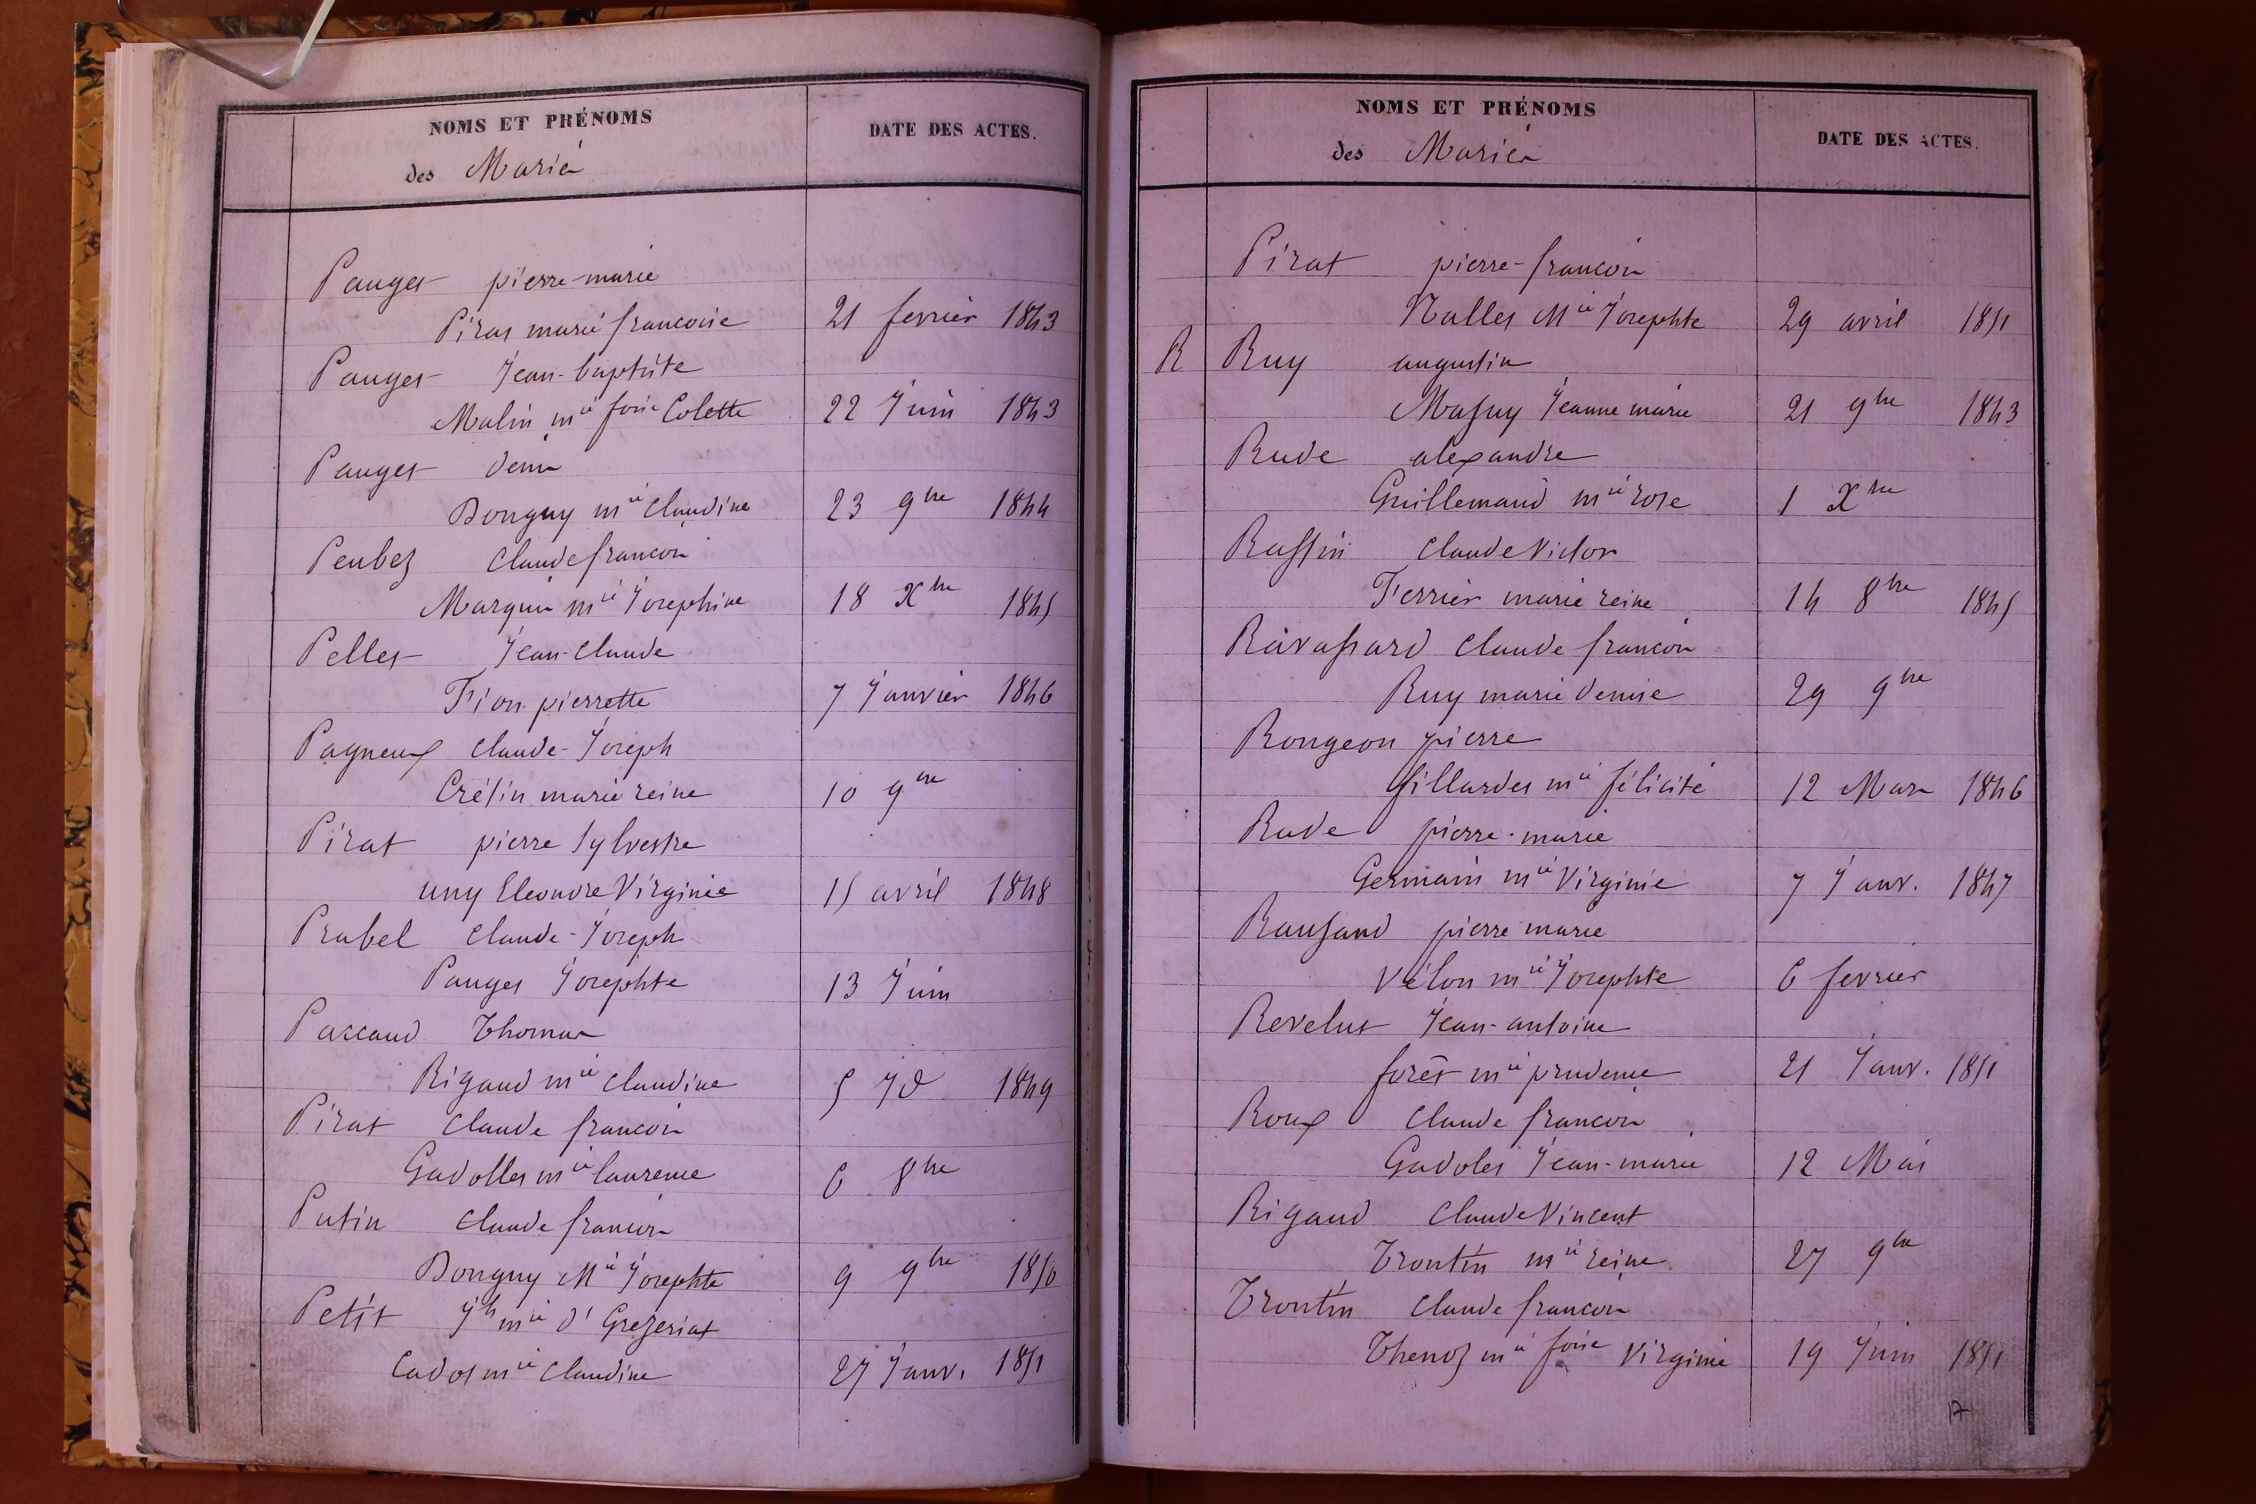 NOMS ET PRÉNOMS
des Mariés
DATE DES ACTES.
Panget pierre-marie
Piras marie francoise 21 fevrier 1843
Panget Jean-baptiste
Malin mie foise Colette 22 Juin 1843
Panget denis
Donguy mie Claudine 23 9bre 1844
Peubez Claude francois
Marquis mie Josephine 18 Xbre 1845
Pellet Jean-Claude
Fion pierrette 7 Janvier 1846
Pagneux Claude-Joseph
Crétin marie reine 10 9bre
Pirat pierre Sylvestre
uny Eleonore Virginie 15 avril 1848
Prabel Claude-Joseph
Panges Josephte 13 Juin
Pascaud Thomas
Rigaud mie Claudine 5 Jd 1849
Pirat Claude francois
Gadolles mie laurence 6 8bre
Putin Claude francois
Donguy Mie Josephte 9 9bre 1850
Petit Jh mie d' Grezeriat
Cados mie Claudine 27 Janv. 1851
NOMS ET PRÉNOMS
des Mariés
DATE DES ACTES.
Pirat pierre-francois
Nalles Mie Josephte 29 avril 1851
R Ruy augustin
Massuy Jeanne marie 21 9bre 1843
Rude alexandre
Guillemaud mie rose 1 Xbre
Raffin Claude Victor
Ferrier marie reine 14 8bre 1845
Ravassard Claude francois
Ruy marie denise 29 9bre
Rongeon pierre
Gillardes mie félicité 12 Mars 1846
Rude pierre-marie
Germain mie Virginie 7 Janv. 1847
Ransand pierre marie
Vélon mie Josephte 6 fevrier
Revelut Jean-antoine
forêt mie prudence 21 Janv. 1851
Roux Claude francois
Gadoles Jean-marie 12 Mai
Rigaud Claude Vincent
Trontin mie reine 27 9bre
Trontin Claude francois
Thenoz mie foise Virginie 19 Juin 1851
17